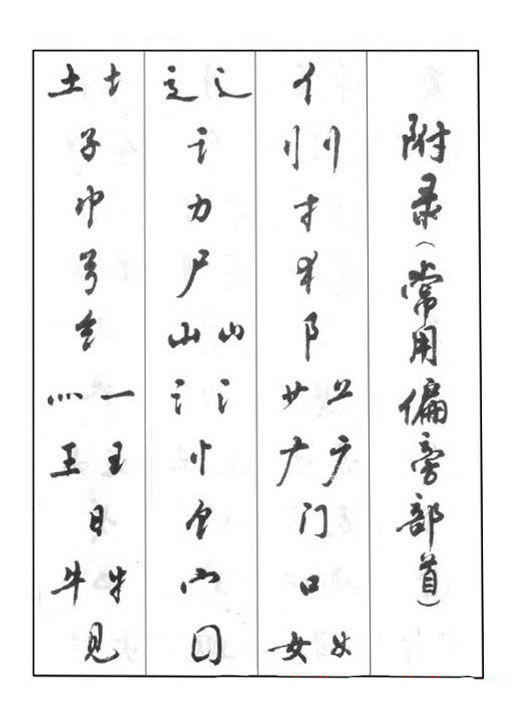 附录（常用偏旁部首）
亻
刂刂
扌
犭
阝
艹艹
广广
门
口
女女
辶辶
讠
力
尸
山山
氵氵
忄
饣
宀
囗
土土
子
巾
弓
纟
灬一
王王
日
牛牛
见